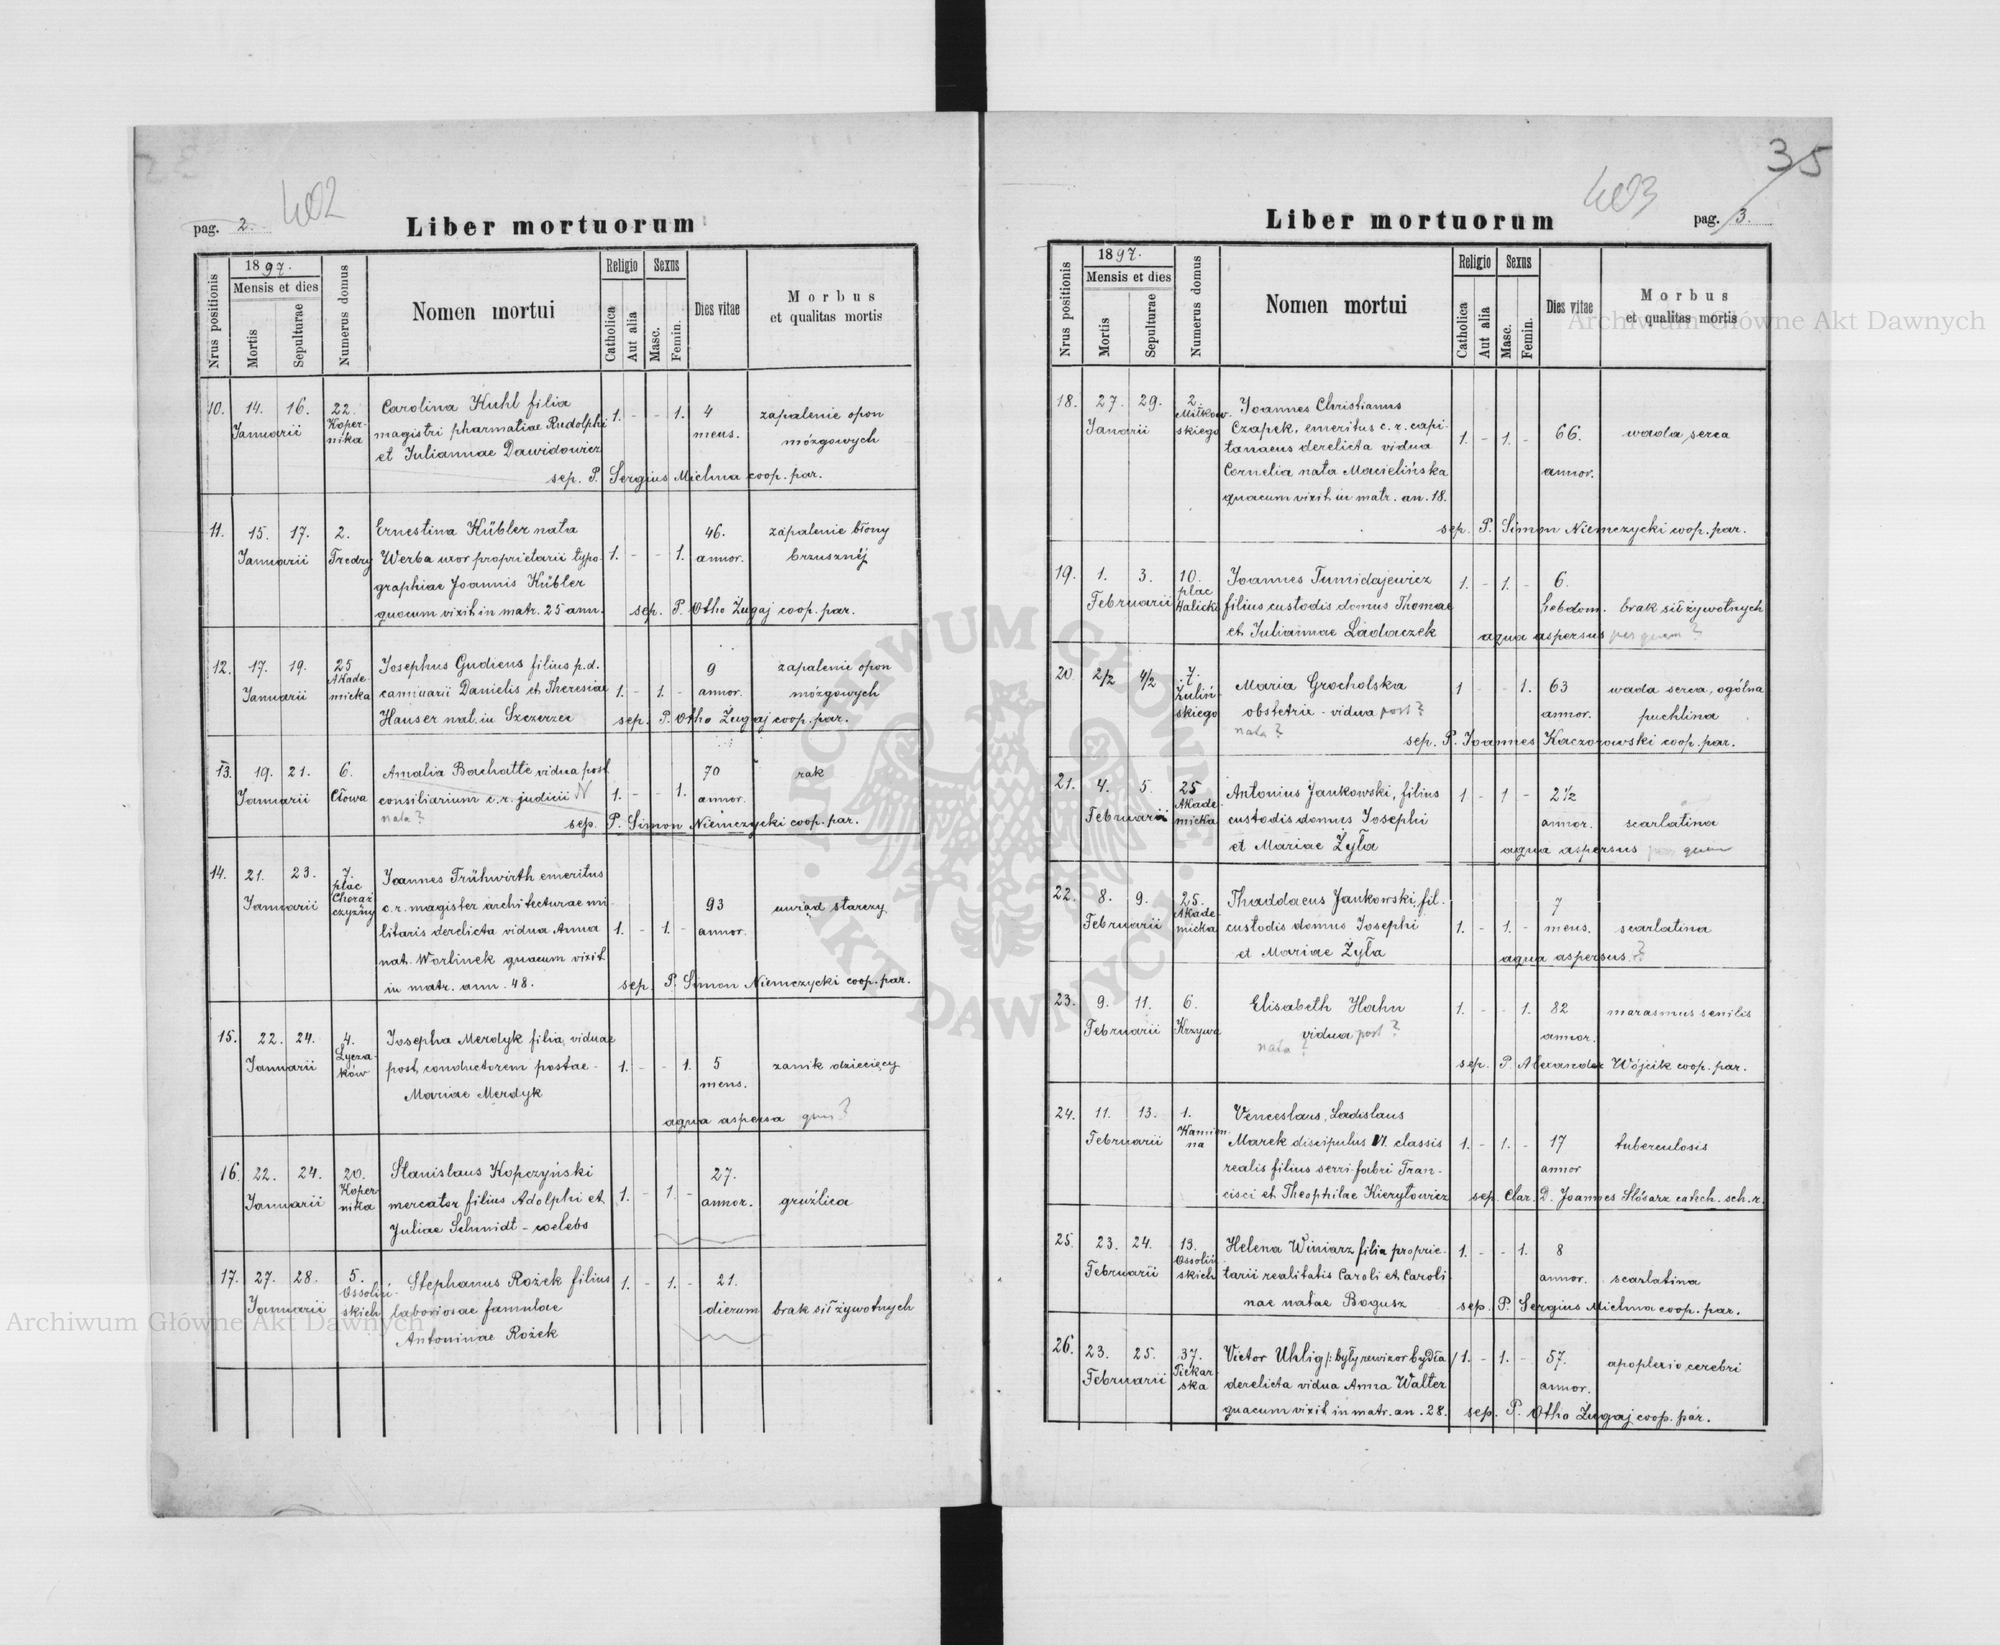 35
402
pag. 2.
Liber mortuorum
Nrus positionis
1897.
Mensis et dies
Mortis
Sepulturae
Numerus domus
Nomen mortui
Religio
Catholica
Aut alia
Sexus
Masc.
Femin.
Dies vitae
Morbus
et qualitas mortis
10. 14. 16. 22. Carolina Kuhl filia 1. - - 1. 4 zapalenie opon
Januarii Koper- magistri pharmatiae Rudolphi meus. mózgowych
nika et Juliannae Dawidowicz
sep. P. Sergius Michna coop. par.
11. 15. 17. 2. Ernestina Kübler nata 46. zapalenie błony
Januarii Fredry Werba uxor proprietarii typo- 1. - - 1. annor. brzusznéj
graphiae Joannis Kübler
quacum vixit in matr. 25 ann. sep. P. Otho Żugaj coop. par.
12. 17. 19. 25 Josephus Gudiens filius p. d. 9 zapalenie opon
Januarii Akade- camuarii Danielis et Theresiae 1. - 1. - annor. mózgowych
micka Hauser nat. in Szczerzec sep. P. Otho Żugaj coop. par.
13. 19. 21. 6. Amalia Bachatte vidua post 70 rak
Januarii Cłowa consiliarium c. r. judicii N 1. - - 1. annor.
nata? sep. P. Simon Niemczycki coop. par.
14. 21. 23. 7. Joannes Frühwirth emeritus
Januarii plac c. r. magister architecturae mi- 93 uwiąd starczy
Chorąż- litaris derelicta vidua Anna 1. - 1. - annor.
czyzny nat. Worlinek quacum vixit
in matr. ann. 48. sep. P. Simon Niemczycki coop. par.
15. 22. 24. 4. Josepha Merdyk filia viduae
Januarii Łycza- post conductorem postae - 1. - - 1. 5 zanik dziecięcy
ków Mariae Merdyk mens.
aqua aspersa quis?
16. 22. 24. 20. Stanislaus Kopczyński 27.
Januarii Koper- mercator filius Adolphi et 1. - 1. - annor. gruźlica
nika Juliae Schmidt - coelebs
17. 27. 28. 5. Stephanus Rożek filius 1. - 1. - 21.
Januarii Ossoliń- laboriosae famulae dierum brak sił żywotnych
skich Antoninae Rożek
403
Liber mortuorum
pag. 3.
Nrus positionis
1897.
Mensis et dies
Mortis
Sepulturae
Numerus domus
Nomen mortui
Religio
Catholica
Aut alia
Sexus
Masc.
Femin.
Dies vitae
Morbus
et qualitas mortis
18. 27. 29. 2. Joannes Christianus
Januarii Miłkow- Czapek, emeritus c. r. capi- 66. wada serca
skiego tanaeus derelicta vidua 1. - 1. -
Cornelia nata Macielińska annor.
quacum vixit in matr. an. 18.
sep. P. Simon Niemczycki coop. par.
19. 1. 3. 10. Joannes Tumidajewicz 1. - 1. - 6.
Februarii plac filius custodis domus Thomae hebdom. brak sił żywotnych
Halicki et Juliannae Ladaczek aqua aspersus per quem?
20 2/2 4/2 7. Maria Grocholska 1 - - 1. 63 wada serca, ogólna
Żuliń- obstetrix - vidua post? annor. puchlina
skiego nata? sep. P. Joannes Kaczorowski coop. par.
21. 4. 5. 25 Antonius Jankowski, filius 1 - 1 - 2 1/2
Februarii Akade- custodis domus Josephi annor. scarlatina
micka et Mariae Żyła aqua aspersus per quem
22. 8. 9. 25. Thaddaeus Jankowski, fil. 7
Februarii Akade- custodis domus Josephi 1. - 1. - mens. scarlatina
micka et Mariae Żyła aqua aspersus ?
23. 9. 11. 6. Elisabeth Hahn 1. - - 1. 82 marasmus senilis
Februarii Krzywa vidua post? annor.
nata?
sep. P. Alexander Wójcik coop. par.
24. 11. 13. 1. Venceslaus, Ladislaus
Februarii Kamien- Marek discipulus VI. classis 1. - 1. - 17 tuberculosis
na realis filius serrifabri Fran- annor
cisci et Theophilae Kieryłowicz sep. Clar. D. Joannes Ślósarz catech. sch. r.
25. 23. 24. 13. Helena Winiarz filia proprie- 1. - - 1. 8
Februarii Ossoliń- tarii realitatis Caroli et Caroli- annor. scarlatina
skich nae natae Bogusz sep. P. Sergius Michna coop. par.
26. 23. 25. 37. Victor Uhlig /: były rewizor bydła / 1. - 1. - 57. apoplexio cerebri
Februarii Piekar- derelicta vidua Anna Walter annor.
ska quacum vixit in matr. an. 28. sep. P. Otho Żugaj coop. par.
Archiwum Główne Akt Dawnych
Archiwum Główne Akt Dawnych
ARCHIWUM GŁÓWNE AKT DAWNYCH